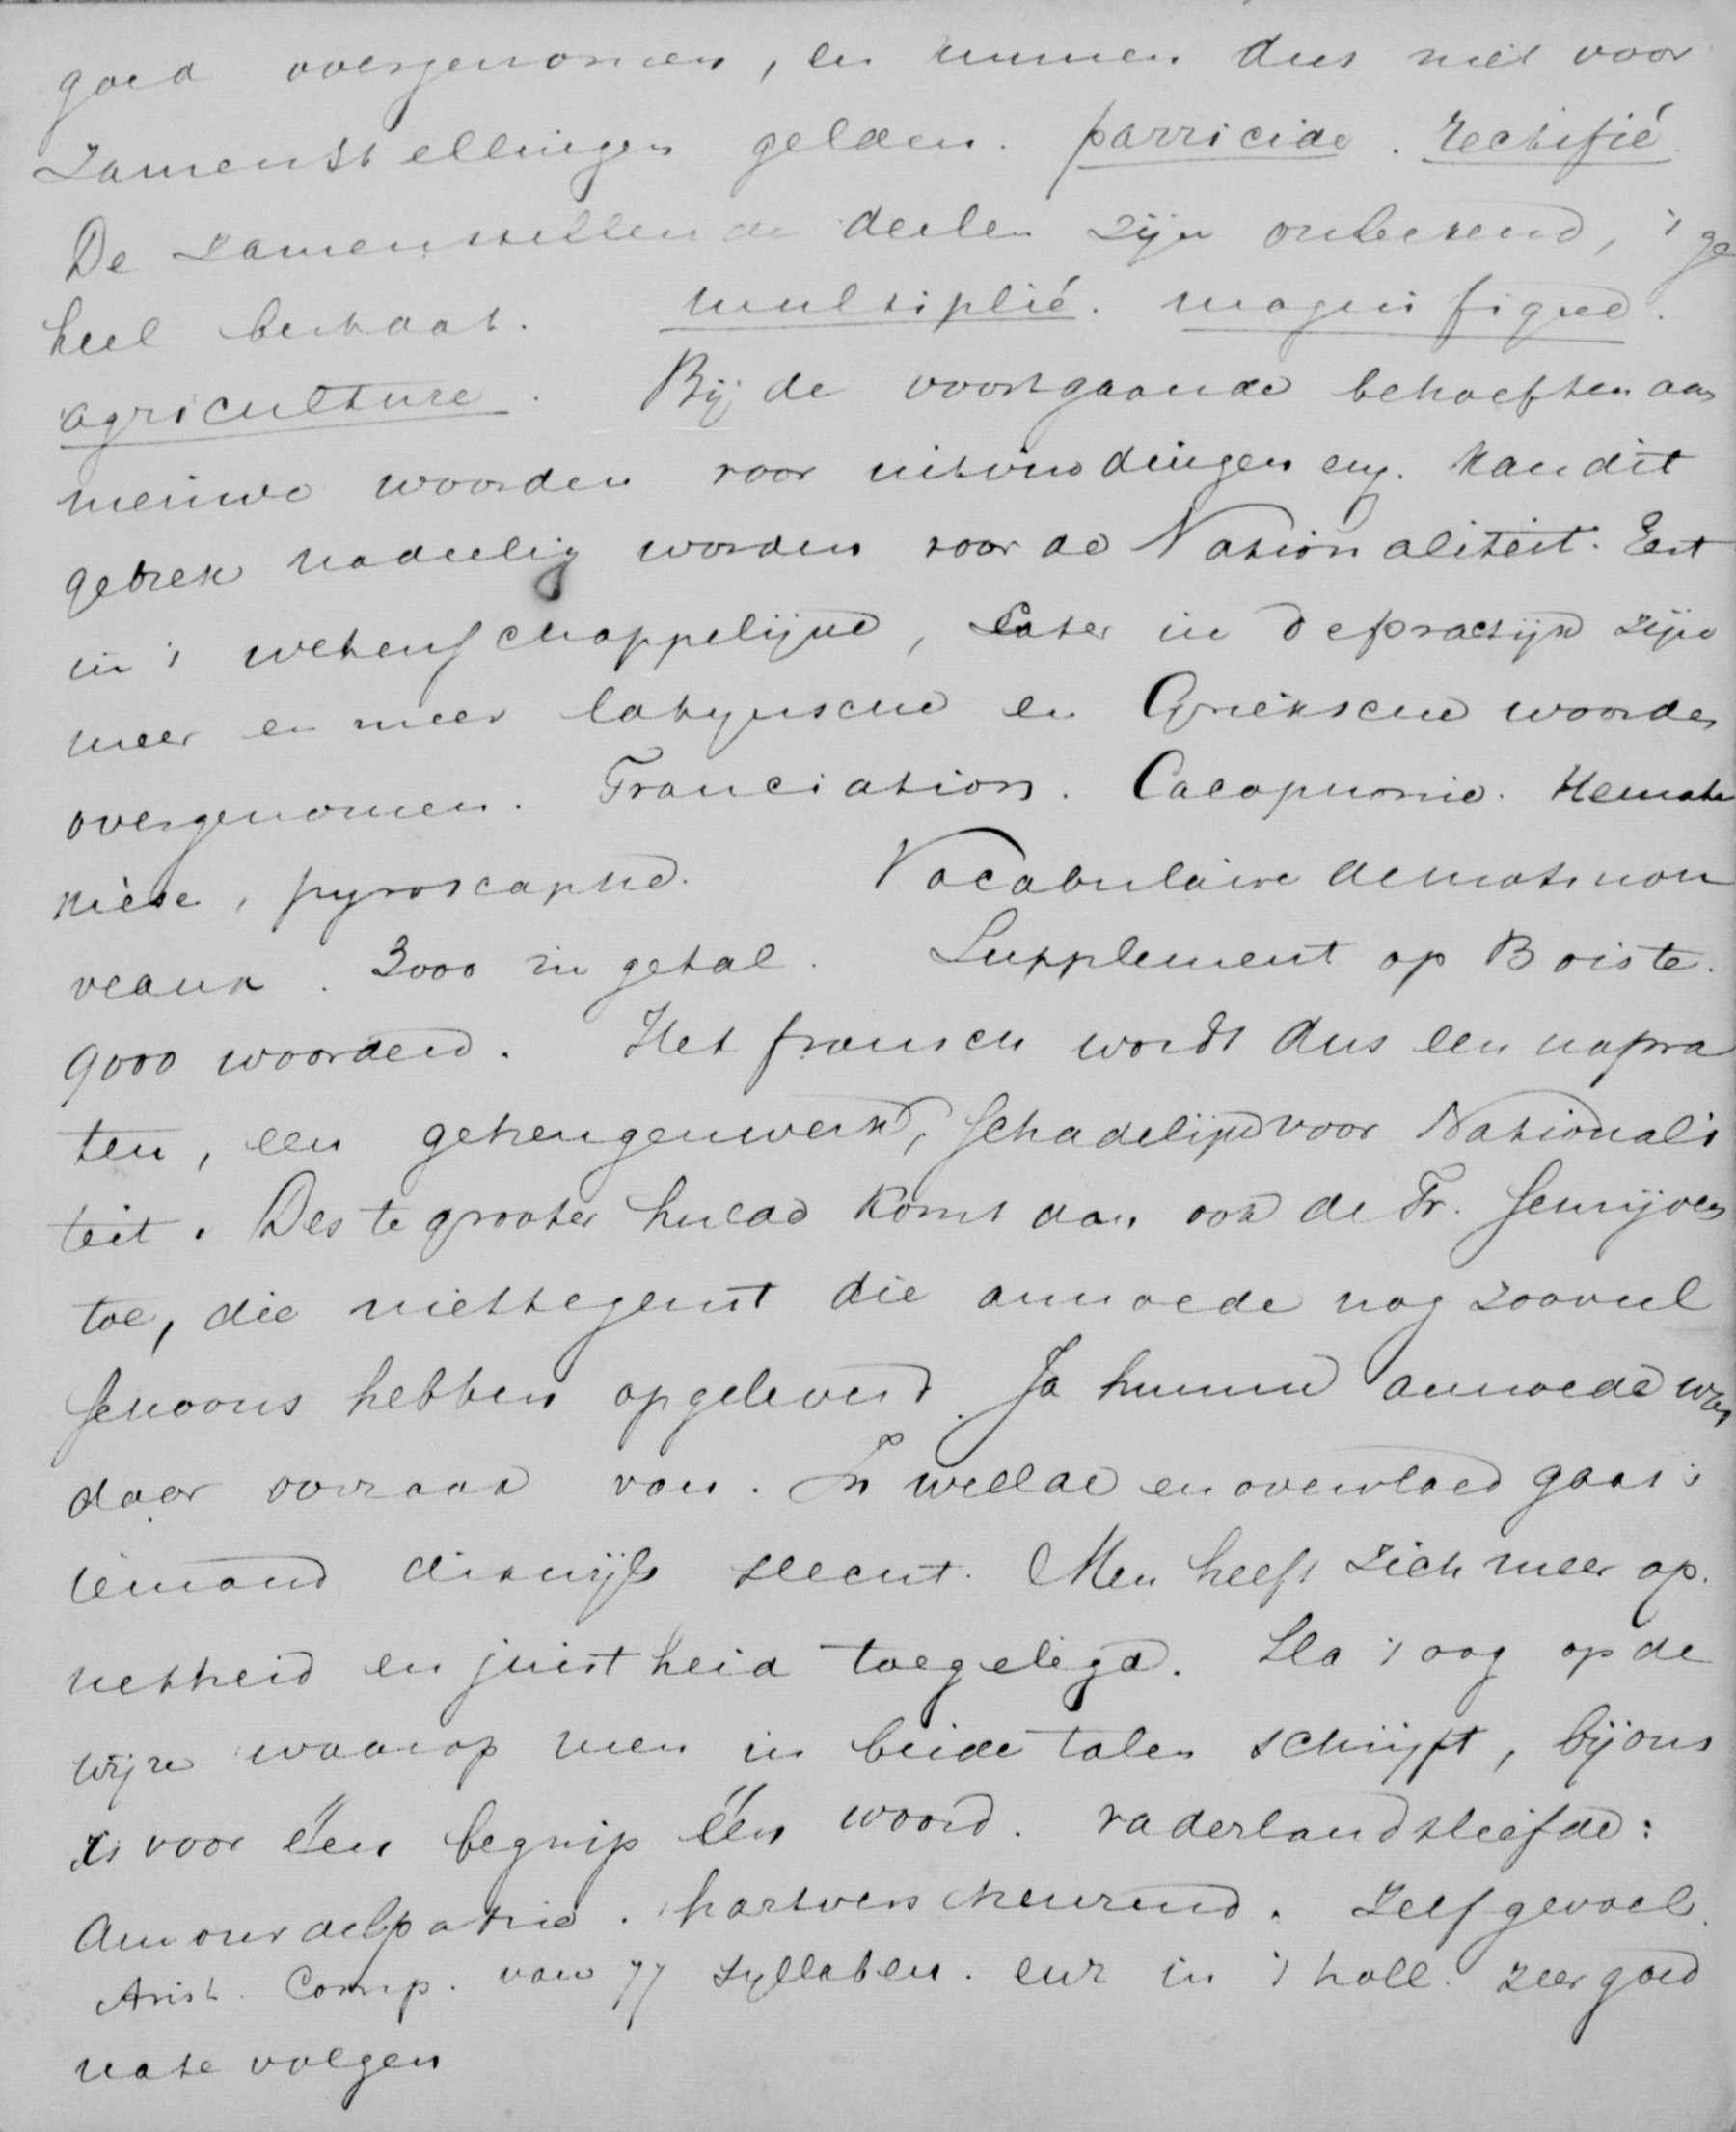 goed overgenomen, en kunnen dus niet voor
zamenstellingen gelden. parricide. rectifié.
De zamenstellende deelen zijn onbekend, 't ge
heel bestaat. multiplié. magnifique.
agriculture. Bij de voortgaande behoeften aan
nieuwe woorden voor uitvindingen enz. kan dit
gebrek nadeelig worden voor de Nationaliteit. Eerst
in 't wetenschappelijke, later in de practijk zijn
meer en meer latijnsche en Grieksche woorden
overgenomen. Cacophonie.
pyroscaphe. Vocabulaire de mots nou
veaux. 3000 in getal. Supplement op Boiste.
9000 woorden. Het fransch wordt dus een napra
ten, een geheugenwerk, schadelijk voor Nationali
teit. Des te grooter hulde komt dan ook de Fr. schrijvers
toe, die niettegenst die armoede nog zooveel
schoons hebben opgeleverd. Ja hunne armoede was
daar oorzaak van. In weelde en overvloed gaat 't
iemand dikwijls slecht. Men heeft zich meer op
netheid en juistheid toegelegd. Sla 't oog op de
wijze waarop men in beide talen schrijft, bij ons
is voor één begrip één woord. vaderlandsliefde:
Amour de la patrie. hartverscheurend. Zelfgevoel.
Arist. Comp. van 77 syllaben. enz in 't holl. zeer goed
na te volgen